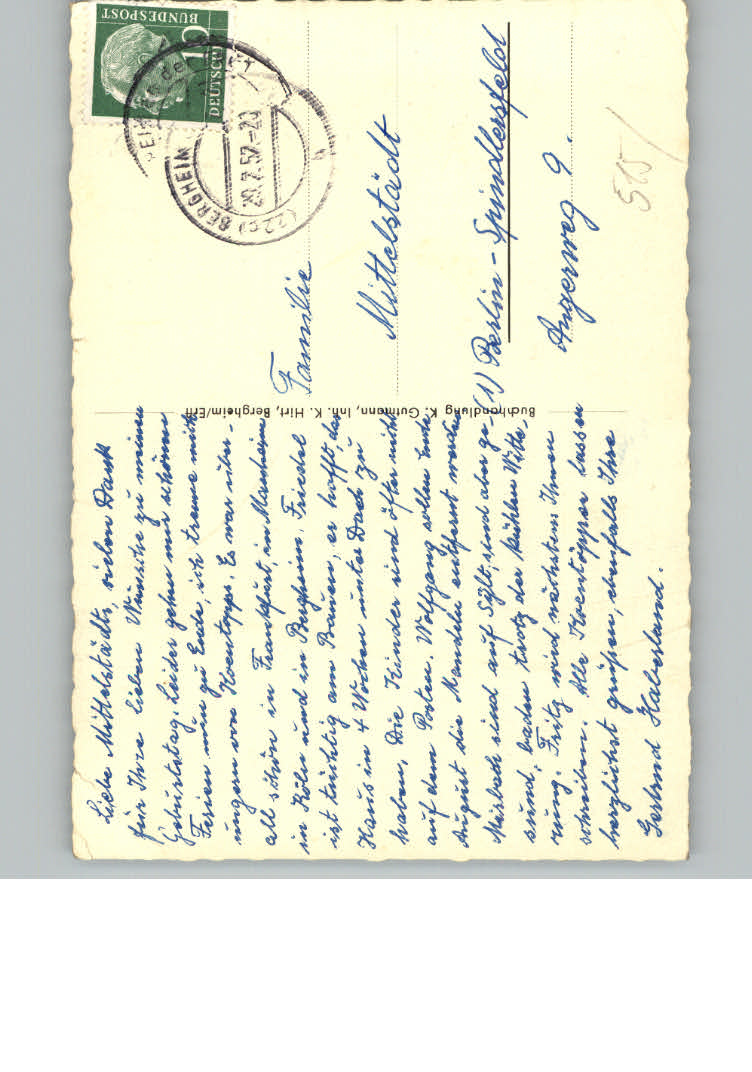 Liebe Mittelstädts, vielen Dank
für Ihre lieben Wünsche zu meinem
Geburtstag. Leider gehen nur schönen
Ferien nun zu Ende, ich trenne mich
ungern von Koentopps. Es war über-
all schön in Frankfurt, in Manheim
in Köln und in Bergheim. Friedel
ist tüchtig am Bauen, er hofft, das
Haus in 4 Wochen unter Dach zu
haben. Die Kinder sind öfter nicht
auf dem Posten. Wolfgang sollen Ende
August die Mandeln entfernt werden
sind auf Sylt, sind aber ge-
sund, baden trotz der kühlen Witte-
rung. Fritz wird nächstens Ihnen
schreiben. Alle Koentöpper lassen
herzlichst grüßen, ebenfalls Ihre
Gertrud Haberland.
Buchhandlung K. Gutmann, Inh. K. Hirt, Bergheim/Erft
DEUTSCHE
BUNDESPOST
10
(22c) BERGHEIM
29.7.57-20
h
Familie
Mittelstädt
(1) Berlin-Spindlersfeld
Angerweg 9.
515/